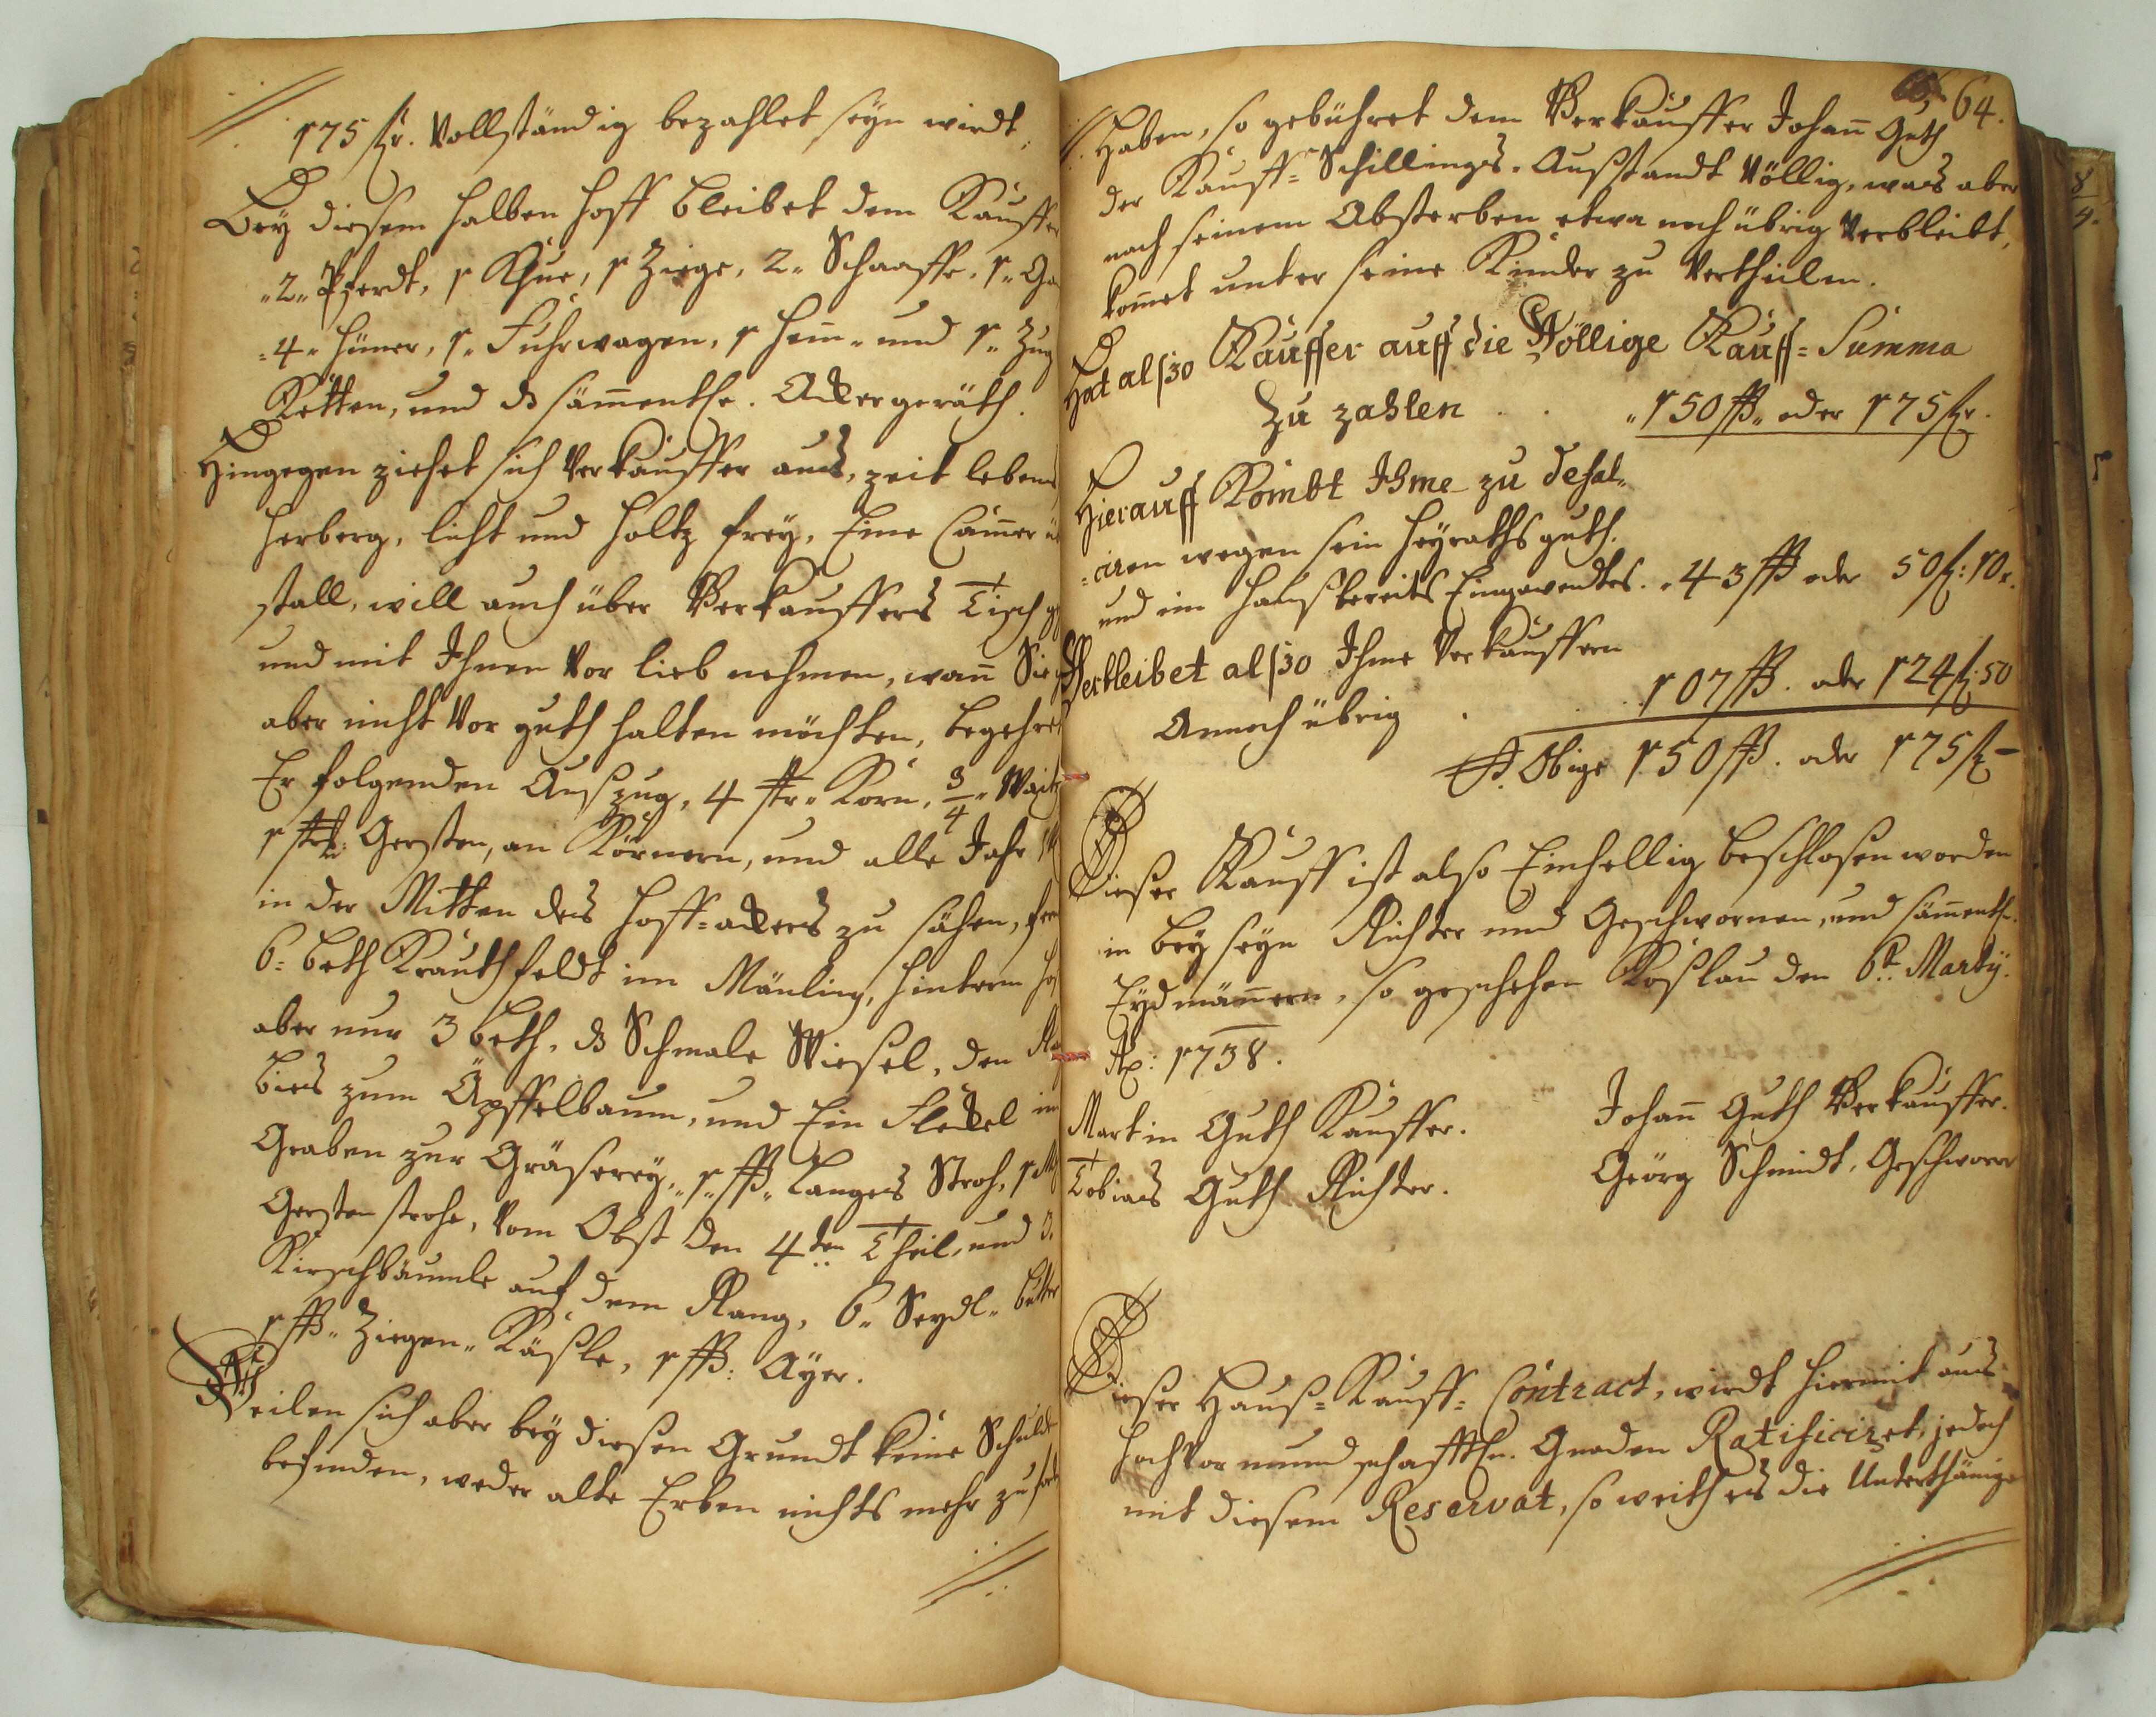 175 fl. Vollständig bezahlet seyn wirdt.
Bey diesem halben Hoff bleibet dem Kauffer
„2„ Pferdt, 1 Khue, 1 Ziege, 2„ Schaaffe, 1„
„4„ Hüner, 1„ Fuhrwagen, 1 Hem„ und 1„ Zug
Ketten, und dß sämmentle. Ackergeräth.
Hingegen ziehet sich Verkauffer aus, zeit lebens
Herberg, licht und Holtz frey, Eine Cammer
stall, will auch über Verkauffers Tisch
und mit Ihnen Vor lieb nehmen, wann Sie
aber nicht Vor guth halten möchten, begehret
Er folgenden Außzug, 4 str„ Korn, 3/4„ Waitz
1 str. Gersten, an Körnern, und alle Jahr
in der Mitten des Hoff=ackers zu sähen,
6= beth Krauthfeldt im Mänling, hinterm
aber nur 3 beth, dß Schmale Wiesel, den
bies zum Äpffelbaum, und Ein Fleckel im
Graben zur Gräserey, „1„ ßß„ Langes Stroh, 1
Gersten strohe, Vom Obst den 4ten Theil, und 3.
Kirschbäumle auf dem Rang, 6„ Seydl„ butter
1 ßß„ Ziegen„ Käßle, 1 ßß: Ayer.
Weilen sich aber bey diesen Grundt keine Schulden
befinden, weder alte Erben nichts mehr zu
64.
Haben, so gebühret dem Verkäuffer Johann Guth
der Kauff=Schillings„ Außstandt Völlig, was aber
nach seinem Absterben etwa noch übrig Verbleibt,
kommet unter seine Kinder zu Vertheilen.
Hat alßo Kauffer auff die Völlige Kauff=Summa
Zu zahlen . . „150 ßß„ oder 175 fl.
Hierauff Kombt Ihme zu defal„
=ciren wegen sein Heyrathsguth.
und im Hauß bereits Eingewendtes. „43 ßß oder 50 fl: 10 x.
Verbleibet alßo Ihme Verkauffern
Annoch übrig . . . 107 ßß. oder 124 fl: 50
Obige 150 ßß. oder 175 fl —
Dießer Kauff ist also Einhellig beschlosen worden
in bey seyn Richter und Geschwornen, und sämmentl.
Eydmännern, so geschehen Koßlau den 6t. Martÿ.
Ao: 1738.
Martin Guth Kauffer.
Johann Guth Verkauffer.
Tobias Guth Richter.
Geörg Schmidt, Geschworner
Dießer Hauß=Kauff= Contract, wirdt hiermit aus
Hochvormundschafftle. Gnaden Ratificiret, jedoch
mit diesem Reservat, so weith es die Unterthänige